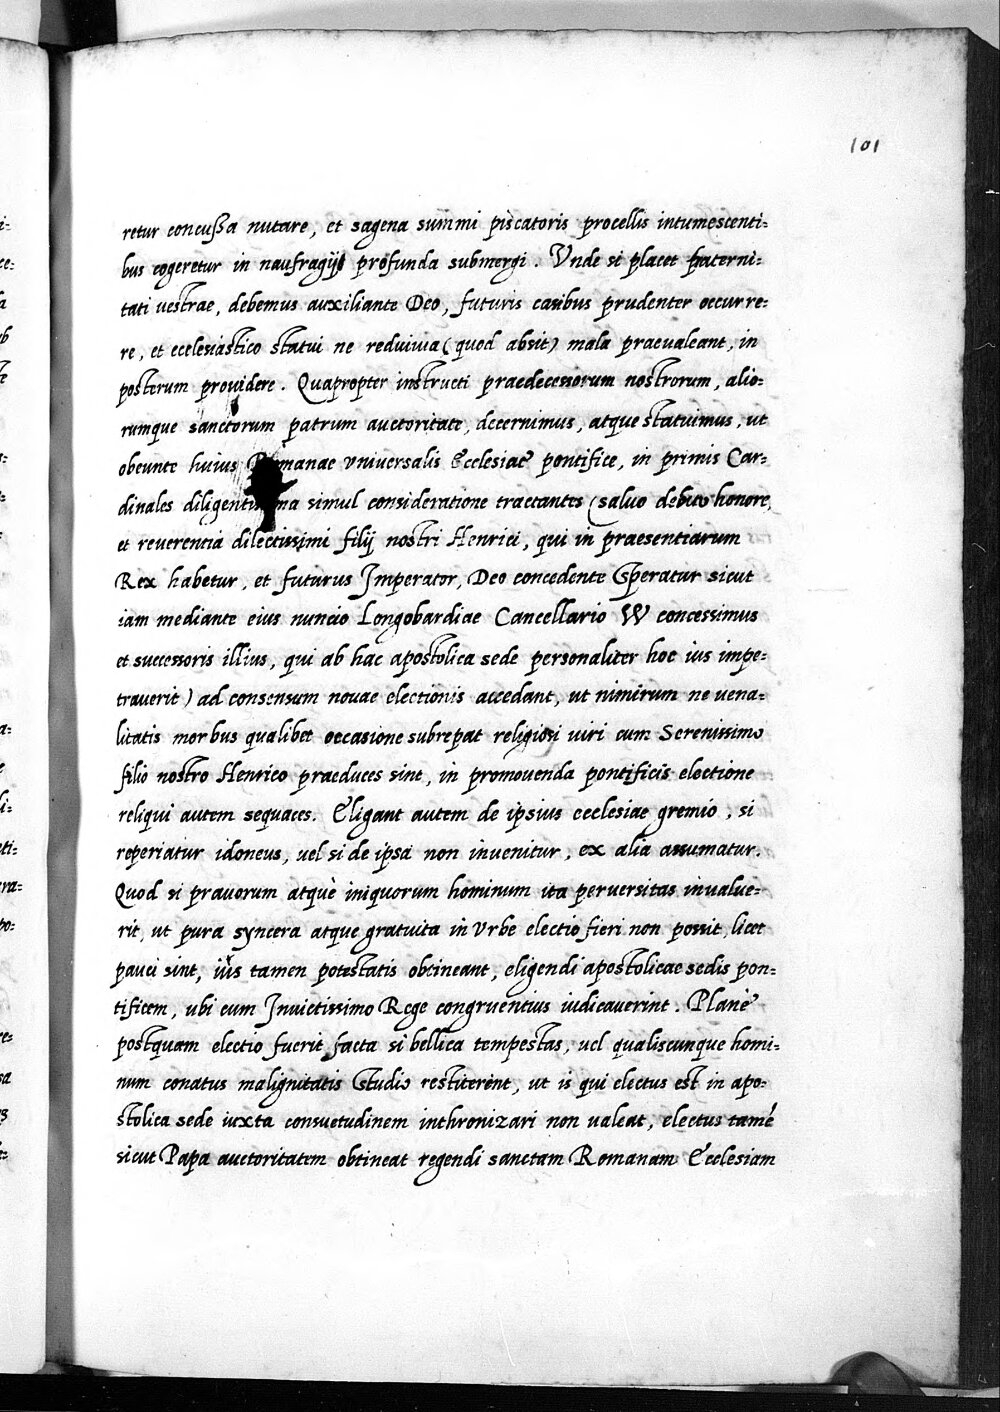 101
retur concussa nutare, et sagena summi piscatoris procellis intumescenti-
bus cogeretur in naufragij profunda submergi. Vnde si placet fraterni-
tati vestrae, debemus auxiliante Deo, futuris casibus prudenter occurre-
re, et ecclesiastico statui ne rediuiua (quod absit) mala praeualeant, in
posterum prouidere. Quapropter instructi praedecessorum nostrorum, alio-
rumque sanctorum patrum auctoritate, decernimus, atque statuimus, ut
obeunte huius Romanae vniuersalis Ecclesiae pontifice, in primis Car-
dinales diligentissima simul consideratione tractantes (saluo debito honore,
et reuerentia dilectissimi filij nostri Henrici, qui in praesentiarum
Rex habetur, et futurus Imperator, Deo concedente Speratur sicut
iam mediante eius nuncio Longobardiae Cancellario W concessimus
et successoris illius, qui ab hac apostolica sede personaliter hoc ius impe-
trauerit) ad consensum nouae electionis accedant, ut nimirum ne vena-
litatis morbus qualibet occasione subrepat religiosi uiri cum Serenissimo
filio nostro Henrico praeduces sint, in promouenda pontificis electione
reliqui autem sequaces. Eligant autem de ipsius ecclesiae gremio, si
reperiatur idoneus, uel si de ipsa non inuenitur, ex alia assumatur.
Quod si prauorum atquè iniquorum hominum ita peruersitas inualue-
rit, ut pura syncera atque gratuita in Vrbe electio fieri non possit, licet
pauci sint, iùs tamen potestatis obtineant, eligendi apostolicae sedis pon-
tificem, ubi cum Inuictissimo Rege congruentius iudicauerint. Planè
postquam electio fuerit facta si bellica tempestas, uel qualiscunque homi-
num conatus malignitatis Studio restiterint, ut is qui electus est in apo-
stolica sede iuxta consuetudinem inthronizari non ualeat, electus tamē
sicut Papa auctoritatem obtineat regendi sanctam Romanam Ecclesiam